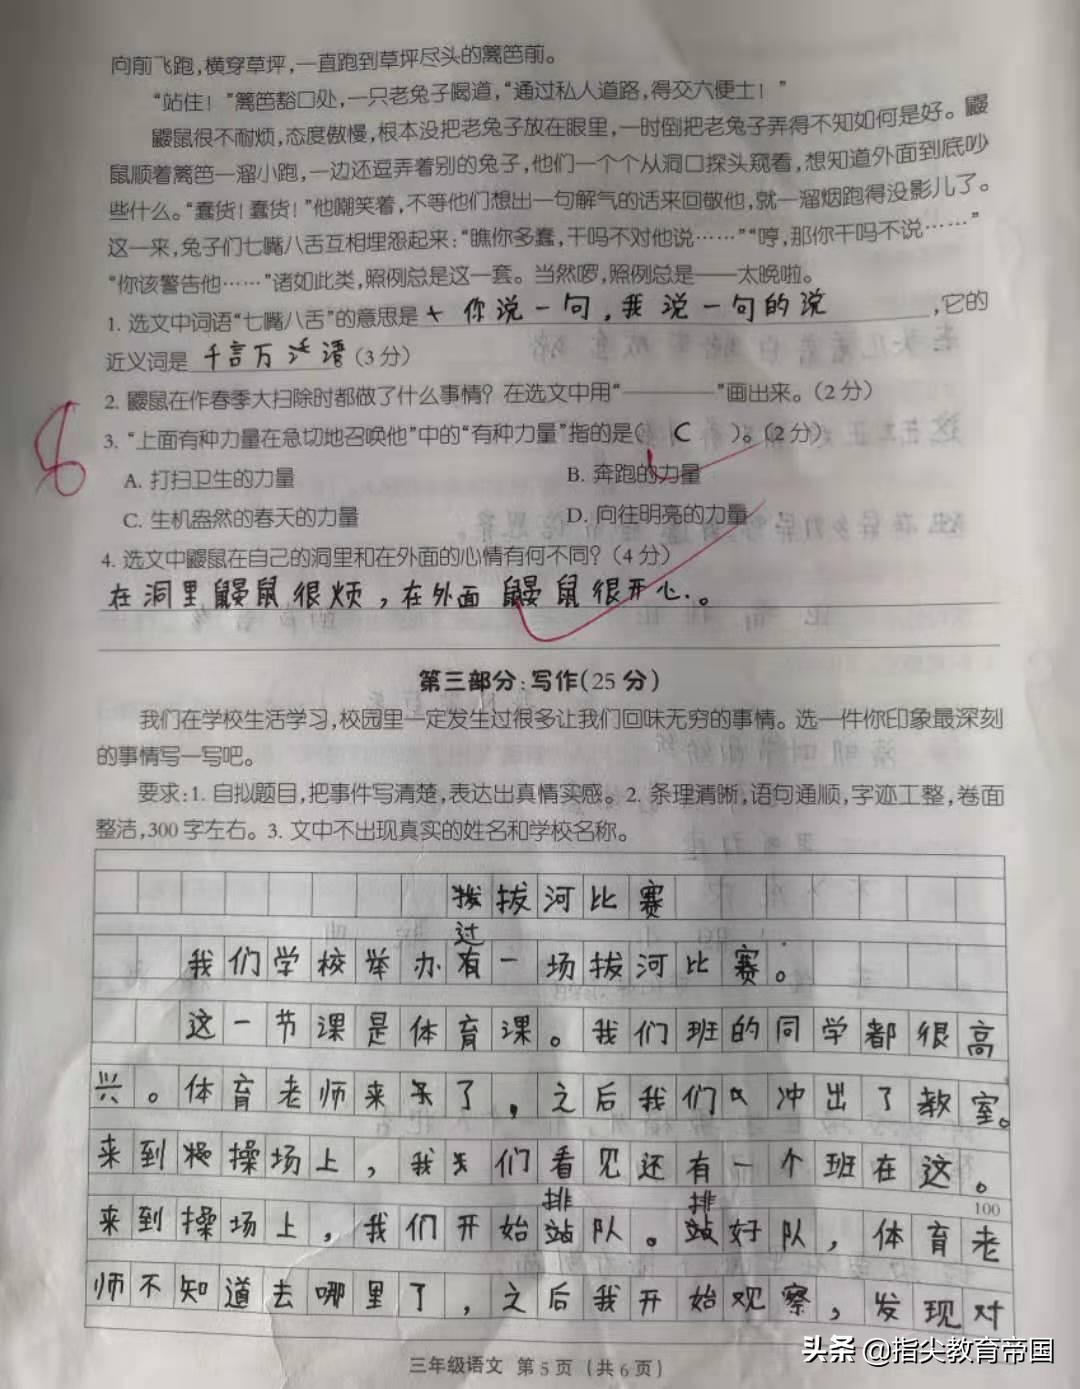 向前飞跑,横穿草坪,一直跑到草坪尽头的篱笆前。
“站住！”篱笆豁口处,一只老兔子喝道,“通过私人道路,得交六便士！”
鼹鼠很不耐烦,态度傲慢,根本没把老兔子放在眼里,一时倒把老兔子弄得不知如何是好。鼹
鼠顺着篱笆一溜小跑,一边还逗弄着别的兔子,他们一个个从洞口探头窥看,想知道外面到底吵
些什么。“蠢货！蠢货！”他嘲笑着,不等他们想出一句解气的话来回敬他,就一溜烟跑得没影儿了。
这一来,兔子们七嘴八舌互相埋怨起来:“瞧你多蠢,干吗不对他说……”“哼,那你干吗不说……”
“你该警告他……”诸如此类,照例总是这一套。当然啰,照例总是——太晚啦。
1. 选文中词语“七嘴八舌”的意思是 你说一句,我说一句的说 ,它的
近义词是 千言万语 (3分)
2. 鼹鼠在作春季大扫除时都做了什么事情？在选文中用“————”画出来。(2分)
8
3. “上面有种力量在急切地召唤他”中的“有种力量”指的是( C )。(2分)
A. 打扫卫生的力量 B. 奔跑的力量
C. 生机盎然的春天的力量 D. 向往明亮的力量
4. 选文中鼹鼠在自己的洞里和在外面的心情有何不同？(4分)
在洞里鼹鼠很烦,在外面鼹鼠很开心.。
第三部分:写作(25分)
我们在学校生活学习,校园里一定发生过很多让我们回味无穷的事情。选一件你印象最深刻
的事情写一写吧。
要求:1. 自拟题目,把事件写清楚,表达出真情实感。2. 条理清晰,语句通顺,字迹工整,卷面
整洁,300字左右。3. 文中不出现真实的姓名和学校名称。
拔河比赛
过
我们学校举办有一场拔河比赛。
这一节课是体育课。我们班的同学都很高
兴。体育老师来了,之后我们冲出了教室。
来到操场上,我们看见还有一个班在这。
100
排 排
来到操场上,我们开始站队。站好队,体育老
师不知道去哪里了,之后我开始观察,发现对
三年级语文 第5页 (共6页)
头条 @指尖教育帝国